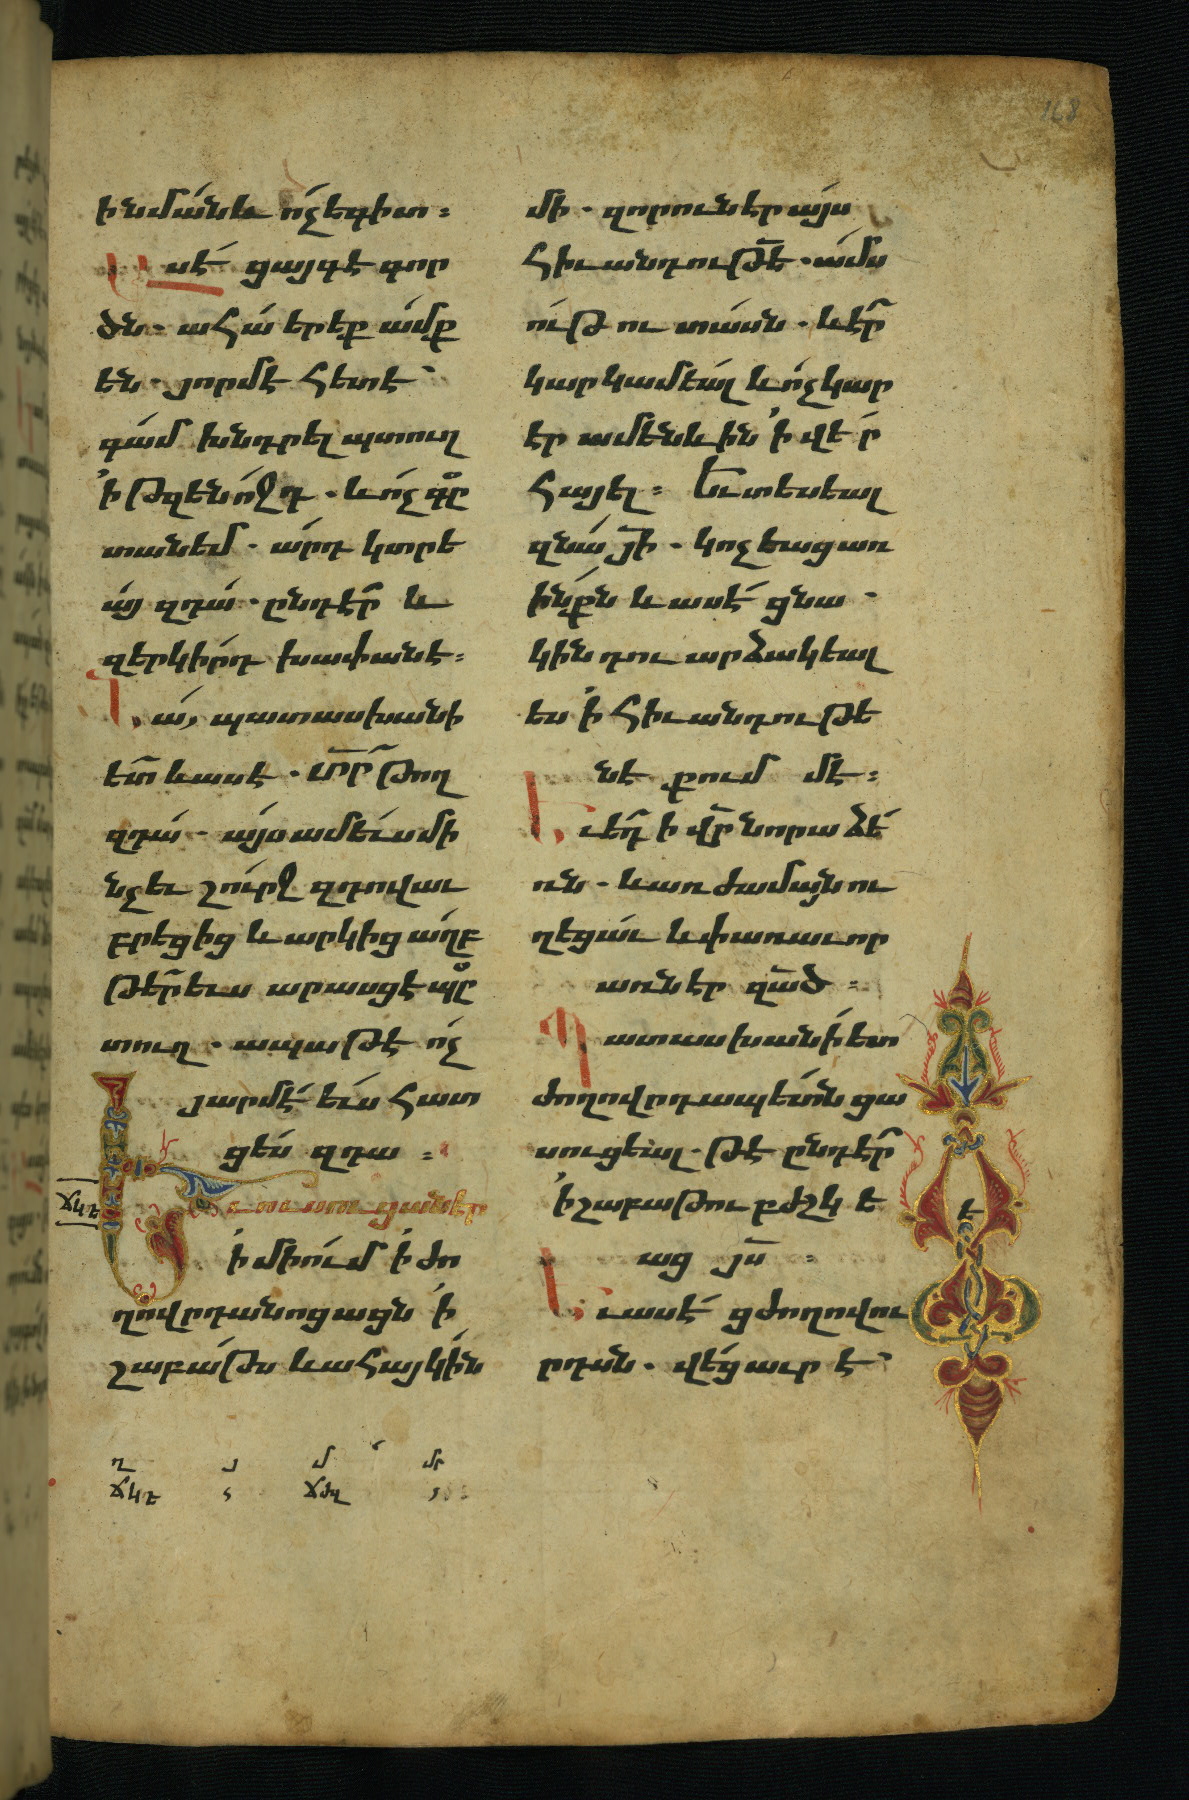 ի նմանե և ոչ եգիտ :
Ասէ ցայգէգոր
ծն. ահա երեք ամք
են. յորմէ հետէ
գամ խնդրել պտուղ
ի թզենոջդ. և ոչ գը
տանեմ. արդ կտրե
այ զդա. ընդէր և
զերկիրդ խափանէ :
Նա, պատասխանի
ետ և ասէ. տր թող
զդա. այս ամ ևս մի
նչեւ շուրջ զդովաւ
բրեցից և արկից աղբ
թերեւս արասցէ պը
տուղ. ապա թէ ոչ
յարմէ եւս հատ
ցես զդա :
ճկե
Եւ ուսուցանէր
ի միում ի ժո
ղովրդանոցացն ի
շաբաթս և ահա կին
մի. զոր ունէր այս
հիւանդութե. ամս
ութուտասն. և էր
կարկամեալ և ոչ կար
էր ամենևին ի վեր
հայել : Եւ տեսեալ
զնա յի. կոչեաց առ
ինքն և ասէ ցնա
կին դու արձակեալ
ես ի հիւանդութե
նէ քումմէ :
Եւ եդ ի վր նորա ձե
ռն. և առ ժամայն ու
ղեցաւ և փառաւոր
առնէր զած :
Պատասխանի ետ
ժողովրդապետն ցա
սուցեալ. թէ ընդէր
ի շաբաթու բժշկե
աց յս :
Եւ ասէ ցժողովու
րդսն. վեց աւր է
է
ղ յ մ մր
ճկե
168